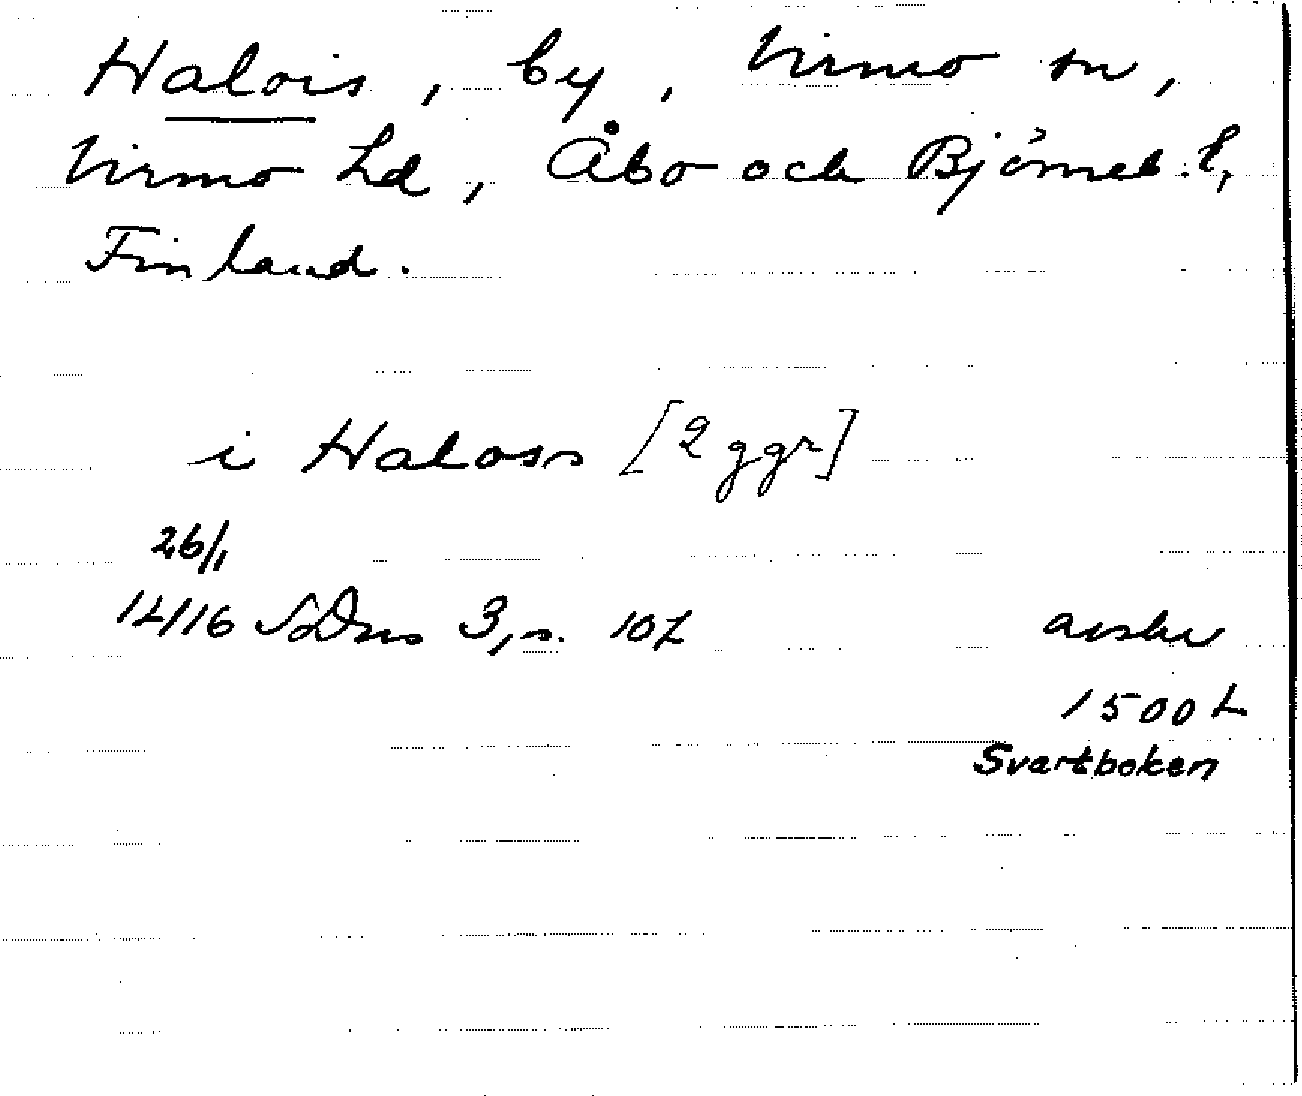 Halois, by, Virmo sn,
Virmo hd, Åbo och Björneb. l,
Finland.
i Haloss [2 ggr]
26/1
1416 SDns 3, s. 107 avskr
1500 t
Svartboken